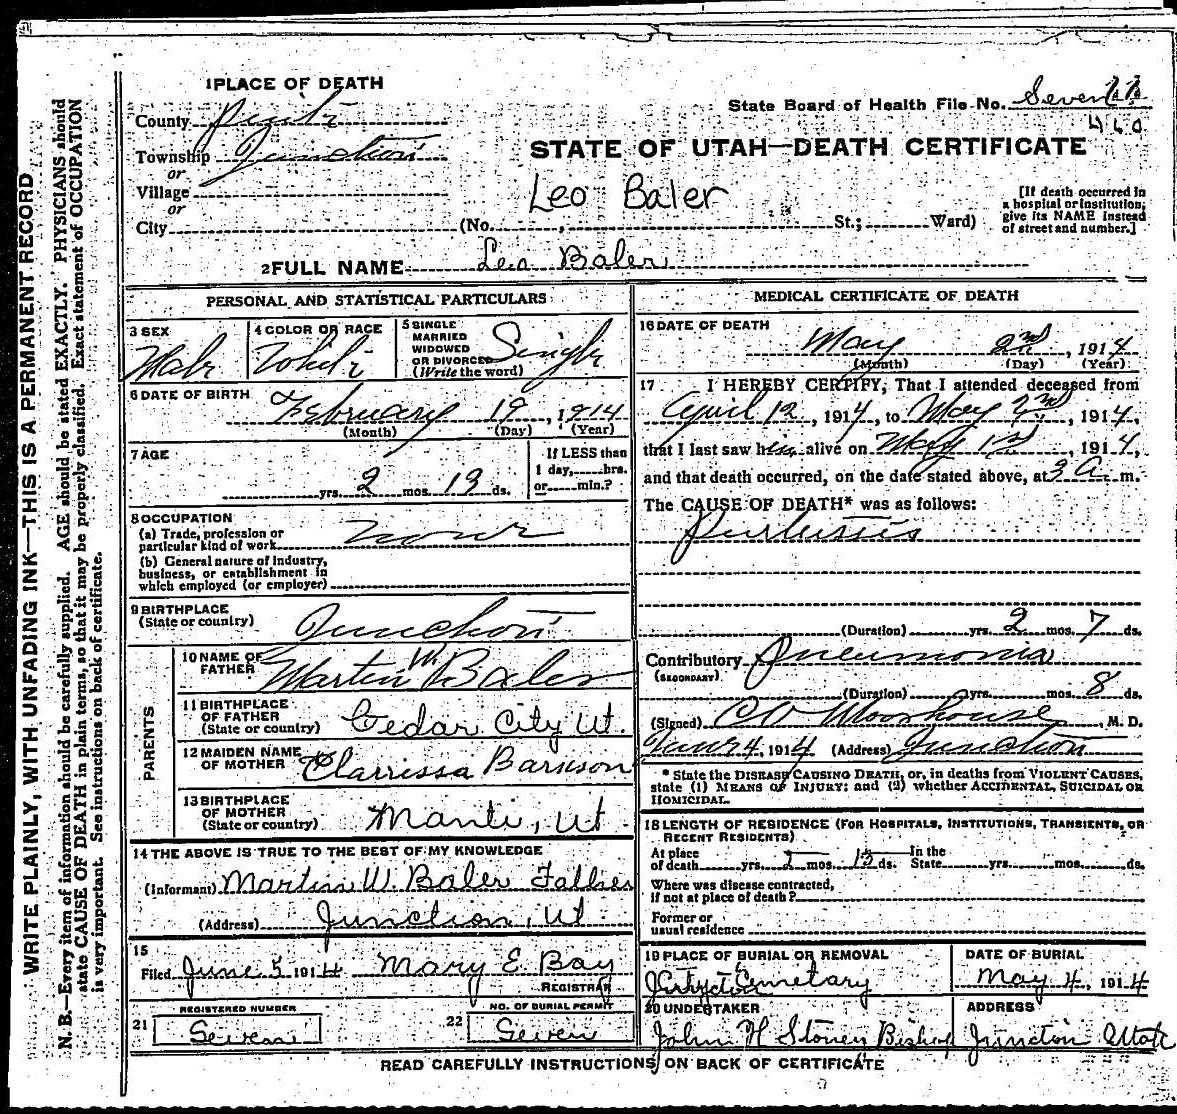 1 PLACE OF DEATH
County Piute
State Board of Health File No. Seven
460
Township Junction
or
STATE OF UTAH—DEATH CERTIFICATE
Village
or
Leo Baler
[If death occurred in a hospital or institution, give its NAME instead of street and number.]
City (No. , St.; Ward)
2 FULL NAME Leo Baler
PERSONAL AND STATISTICAL PARTICULARS
3 SEX Male
4 COLOR OR RACE White
5 SINGLE MARRIED WIDOWED OR DIVORCED (Write the word) Single
6 DATE OF BIRTH February 19, 1914
(Month) (Day) (Year)
7 AGE
yrs. 2 mos. 13 ds.
If LESS than 1 day, hrs. or min.?
8 OCCUPATION
(a) Trade, profession or particular kind of work none
(b) General nature of industry, business, or establishment in which employed (or employer)
9 BIRTHPLACE (State or country) Junction
PARENTS
10 NAME OF FATHER Martin W. Baler
11 BIRTHPLACE OF FATHER (State or country) Cedar City Ut.
12 MAIDEN NAME OF MOTHER Clarrissa
13 BIRTHPLACE OF MOTHER (State or country) Manti, Ut.
14 THE ABOVE IS TRUE TO THE BEST OF MY KNOWLEDGE
(Informant) Martin W. Baler Father
(Address) Junction, Ut.
15 Filed June 5 1914 Mary E. Bay
REGISTRAR
REGISTERED NUMBER
21 Seven
NO. OF BURIAL PERMIT
22 Seven
MEDICAL CERTIFICATE OF DEATH
16 DATE OF DEATH
May 2nd, 1914
(Month) (Day) (Year)
17 I HEREBY CERTIFY, That I attended deceased from
April 12, 1914, to May 2nd, 1914,
that I last saw him alive on May 1st, 1914,
and that death occurred, on the date stated above, at 3 A m.
The CAUSE OF DEATH* was as follows:
Pertussis
(Duration) yrs. 2 mos. 7 ds.
Contributory Pneumonia
(SECONDARY)
(Duration) yrs. mos. 8 ds.
(Signed) C W Moorhouse, M. D.
June 4, 1914 (Address) Junction
* State the DISEASE CAUSING DEATH, or, in deaths from VIOLENT CAUSES,
state (1) MEANS OF INJURY; and (2) whether ACCIDENTAL, SUICIDAL OR
HOMICIDAL.
18 LENGTH OF RESIDENCE (FOR HOSPITALS, INSTITUTIONS, TRANSIENTS, OR
RECENT RESIDENTS)
At place of death yrs. 2 mos. 13 ds. In the State yrs. mos. ds.
Where was disease contracted,
if not at place of death?
Former or
usual residence
19 PLACE OF BURIAL OR REMOVAL
Junction Cemetary
DATE OF BURIAL
May 4, 1914
20 UNDERTAKER
John H Stoney Bishop
ADDRESS
Junction Utah
READ CAREFULLY INSTRUCTIONS ON BACK OF CERTIFICATE
WRITE PLAINLY, WITH UNFADING INK—THIS IS A PERMANENT RECORD
N. B.—Every item of information should be carefully supplied. AGE should be stated EXACTLY. PHYSICIANS should
state CAUSE OF DEATH in plain terms, so that it may be properly classified. Exact statement of OCCUPATION
is very important. See instructions on back of certificate.